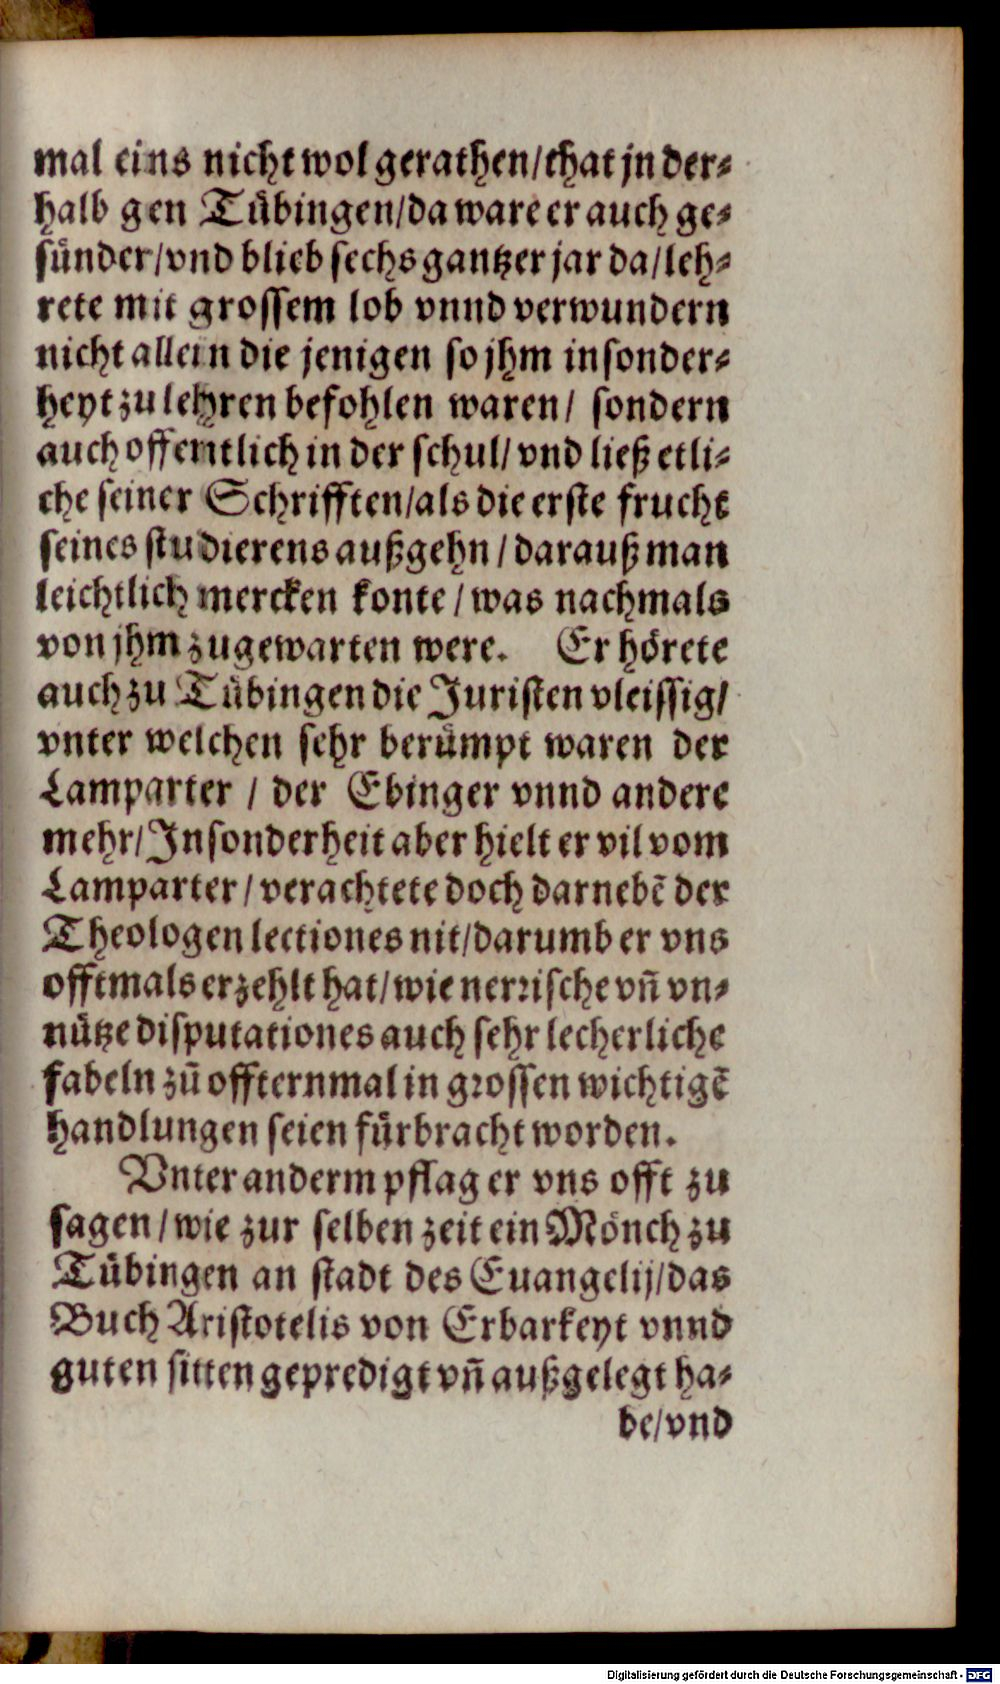 mal eins nicht wol gerathen/that jn der⸗
halb gen Tuͤbingen/da ware er auch ge⸗
suͤnder/vnd blieb sechs gantzer jar da/leh⸗
rete mit grossem lob vnnd verwundern
nicht allein die jenigen so jhm insonder⸗
heyt zu lehren befohlen waren/ sondern
auch offentlich in der schul/ vnd ließ etli⸗
che seiner Schrifften/als die erste frucht
seines studierens außgehn / darauß man
leichtlich mercken konte / was nachmals
von jhm zugewarten were. Er hoͤrete
auch zu Tuͤbingen die Juristen vleissig/
vnter welchen sehr beruͤmpt waren der
Lamparter / der Ebinger vnnd andere
mehr/ Insonderheit aber hielt er vil vom
Lamparter / verachtete doch darnebẽ der
Theologen lectiones nit/darumb er vns
offtmals erzehlt hat/wie nerrische vñ vn⸗
nuͤtze disputationes auch sehr lecherliche
fabeln zũ offternmal in grossen wichtigẽ
handlungen seien fuͤrbracht worden.
Vnter anderm pflag er vns offt zu
sagen / wie zur selben zeit ein Moͤnch zu
Tuͤbingen an stadt des Euangelij/das
Buch Aristotelis von Erbarkeyt vnnd
guten sitten gepredigt vñ außgelegt ha⸗
be/vnd
Digitalisierung gefördert durch die Deutsche Forschungsgemeinschaft - DFG